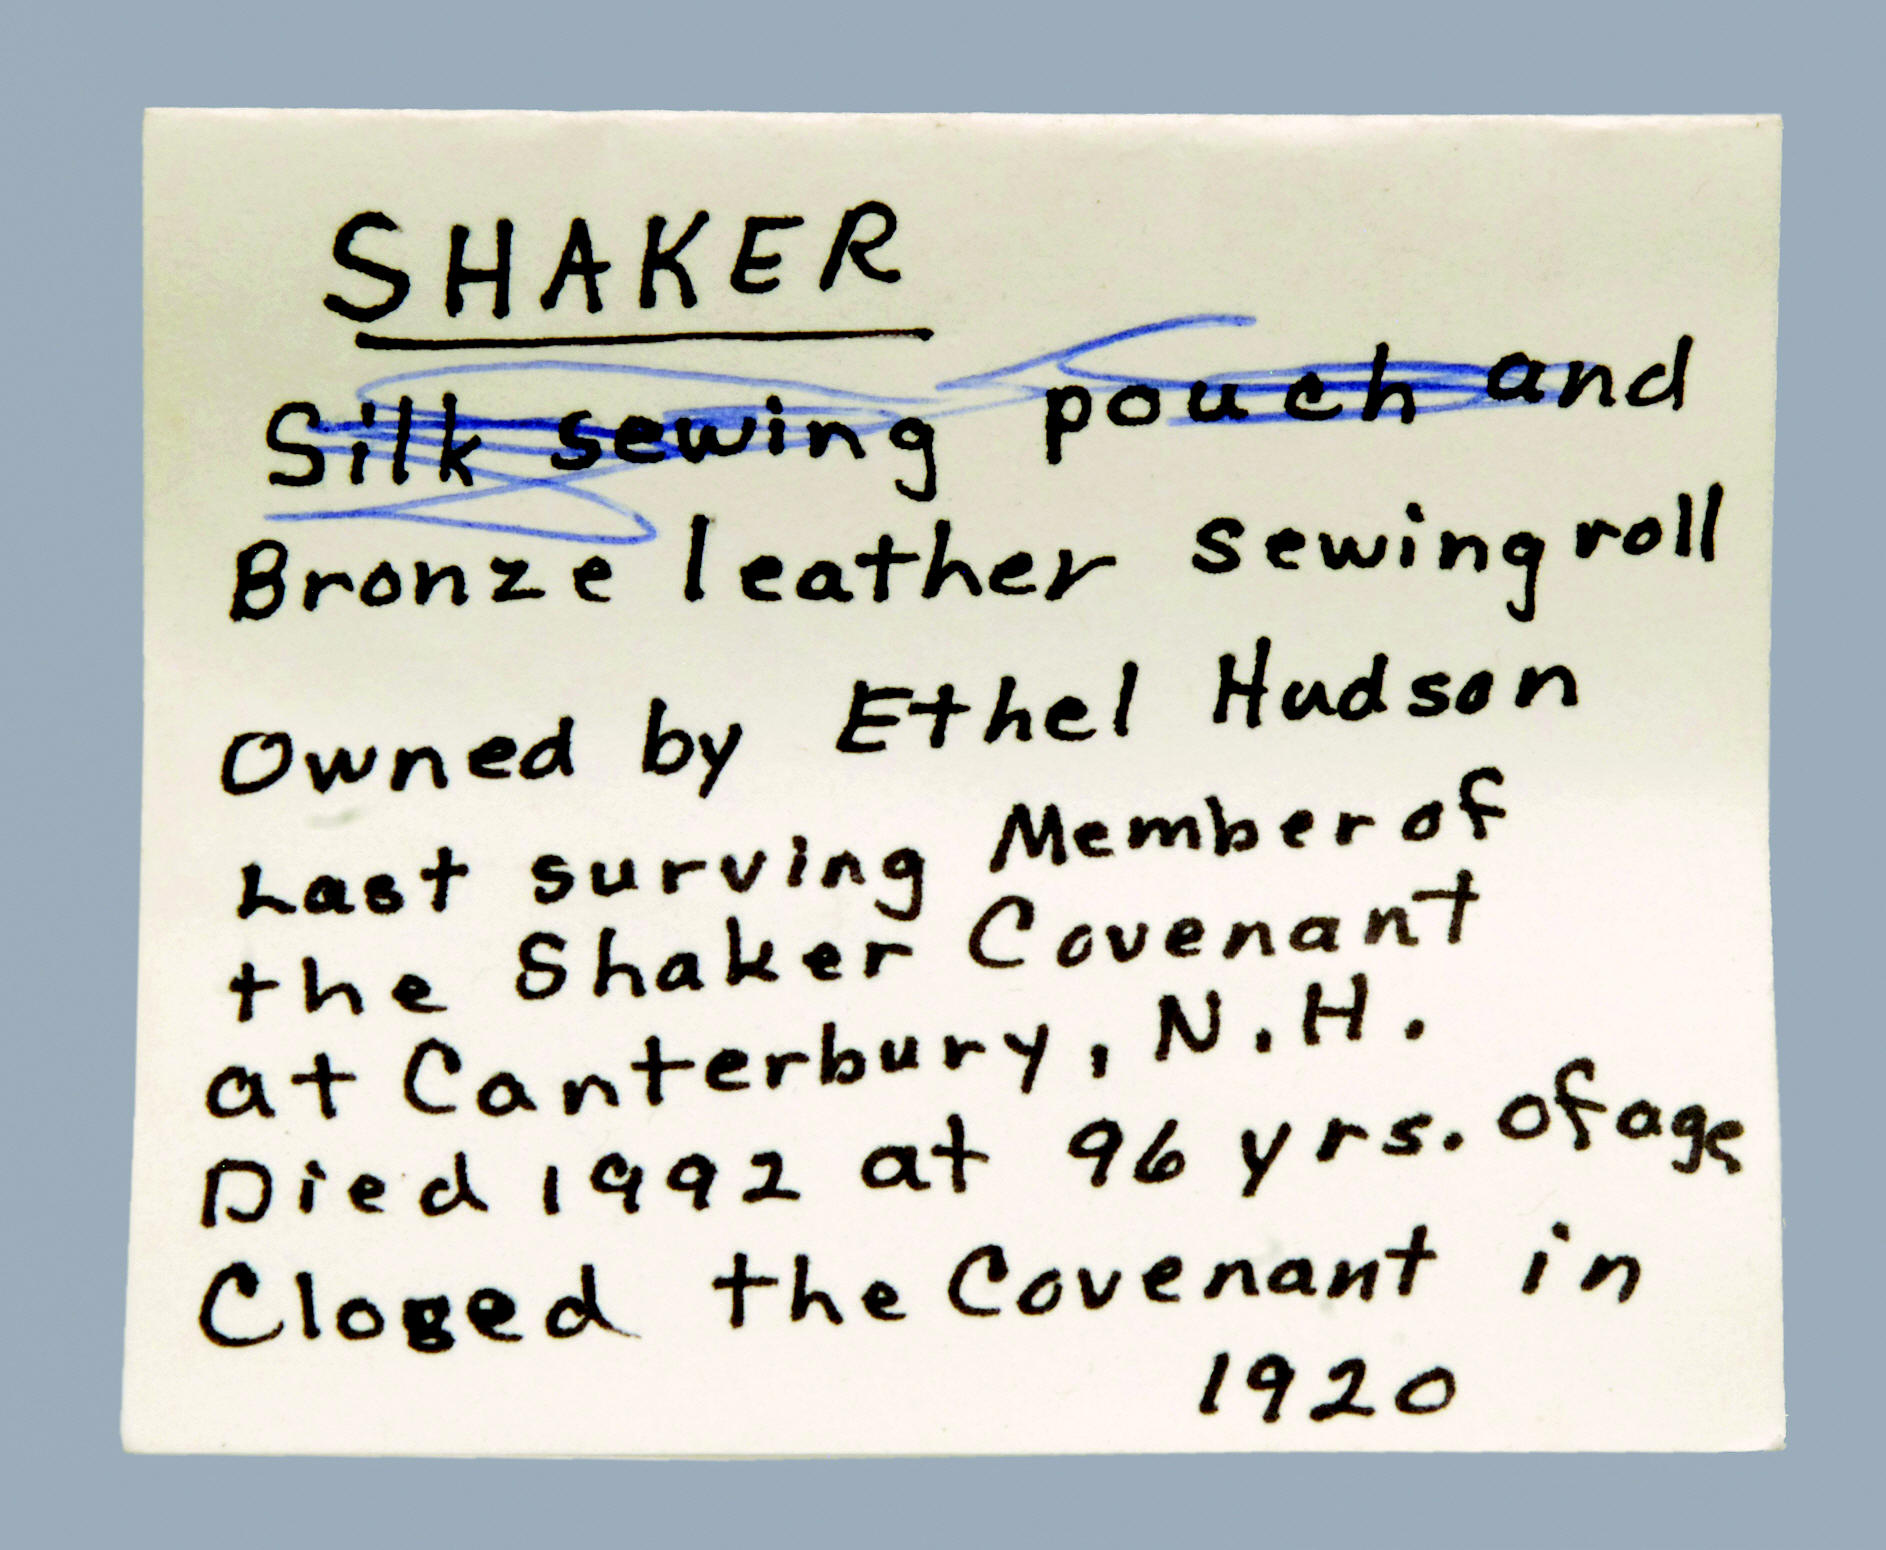 SHAKER
Silk sewing pouch and
Bronze leather sewing roll
Owned by Ethel Hudson
Last surving Member of
the Shaker Covenant
at Canterbury, N.H.
Died 1992 at 96 yrs. of age
Closed the Covenant in
1920